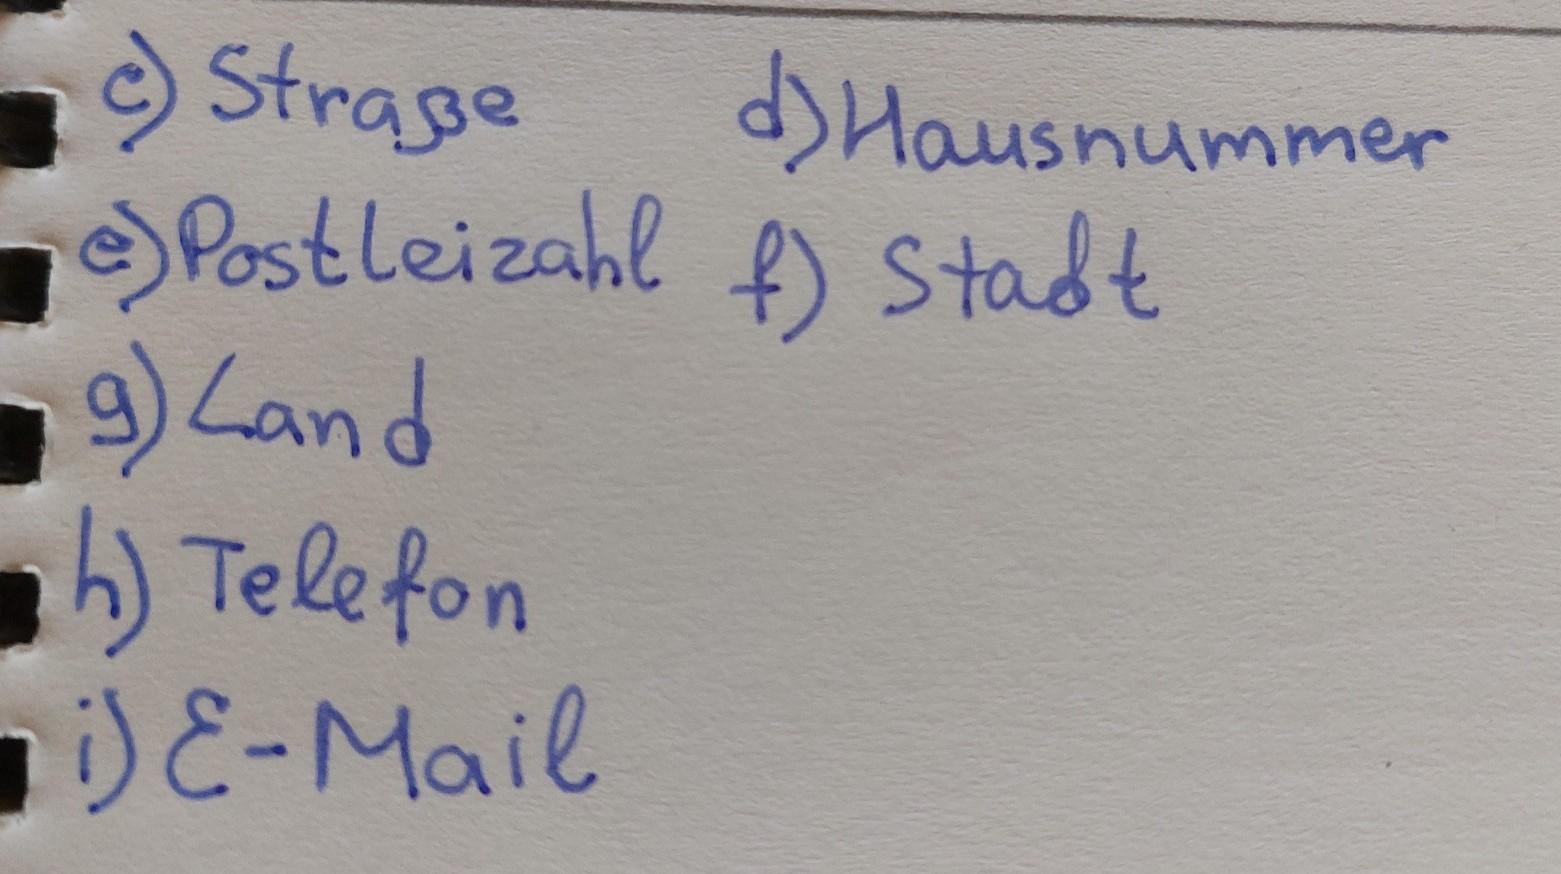 c) Straße d) Hausnummer
e) Postleizahl f) Stadt
g) Land
h) Telefon
i) E-Mail